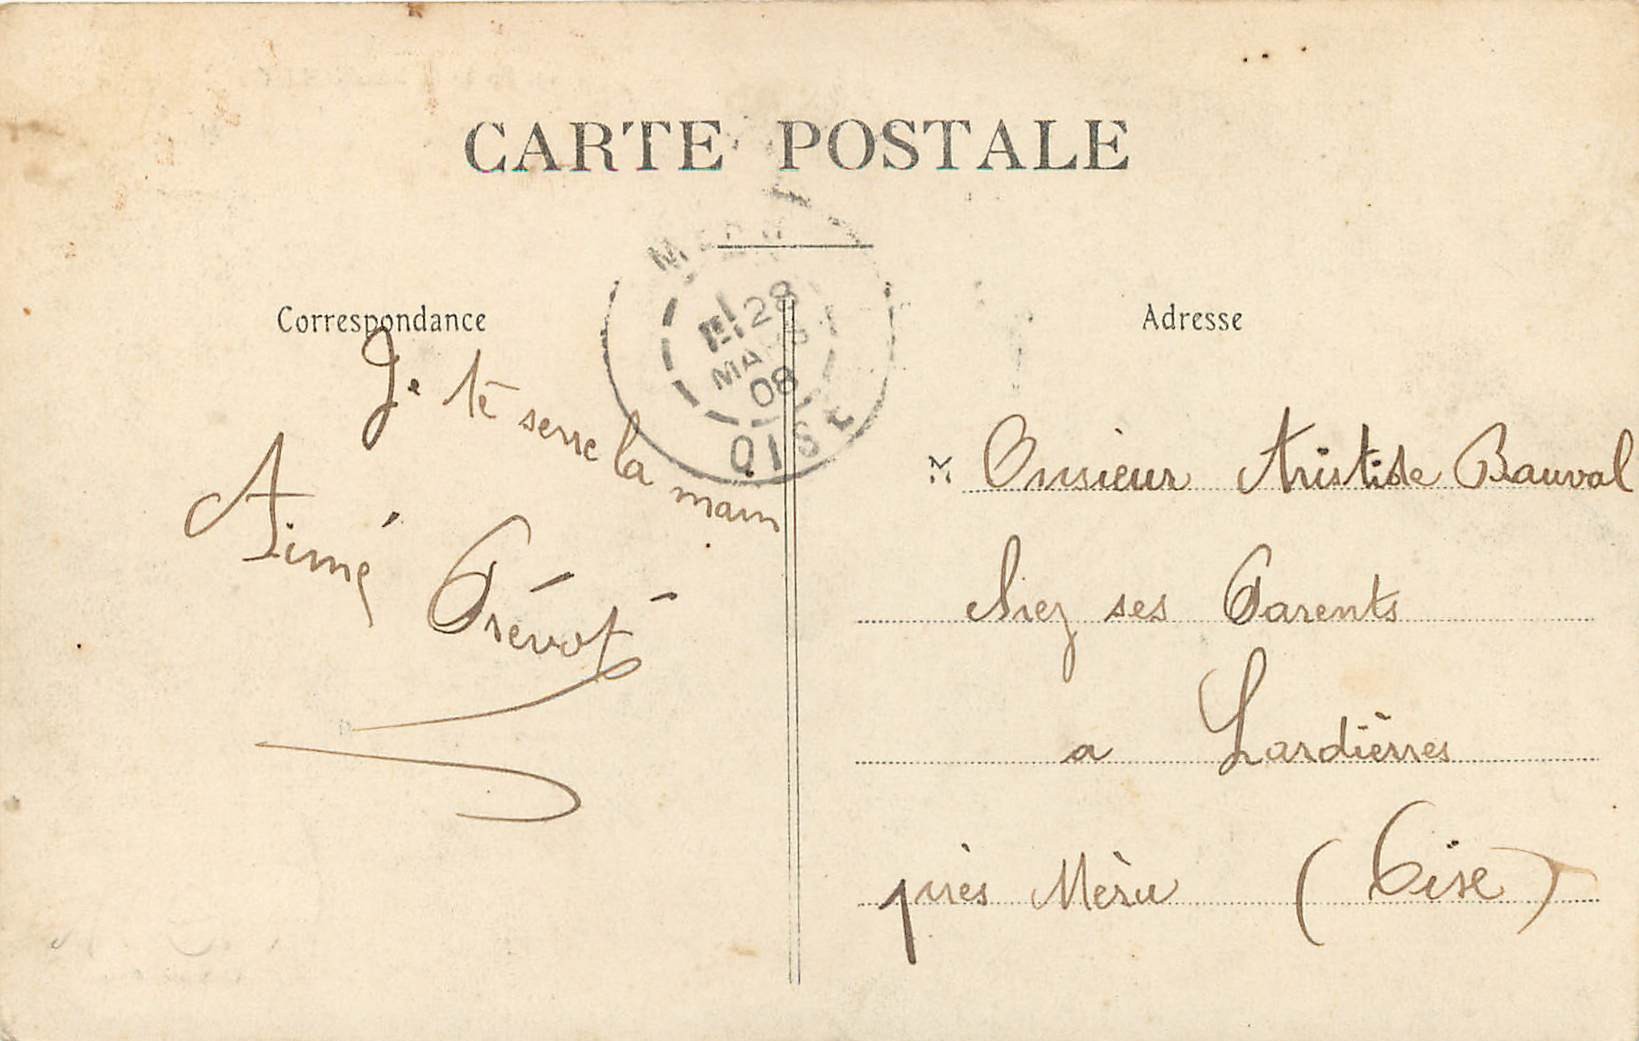 CARTE POSTALE
Correspondance
Je te serre la main
Aimé Prévot
MERU
28
MARS
08
OISE
Adresse
M Onsieur Aristide Bauval
chez ses Parents
a Lardières
près Mèru (Oise)